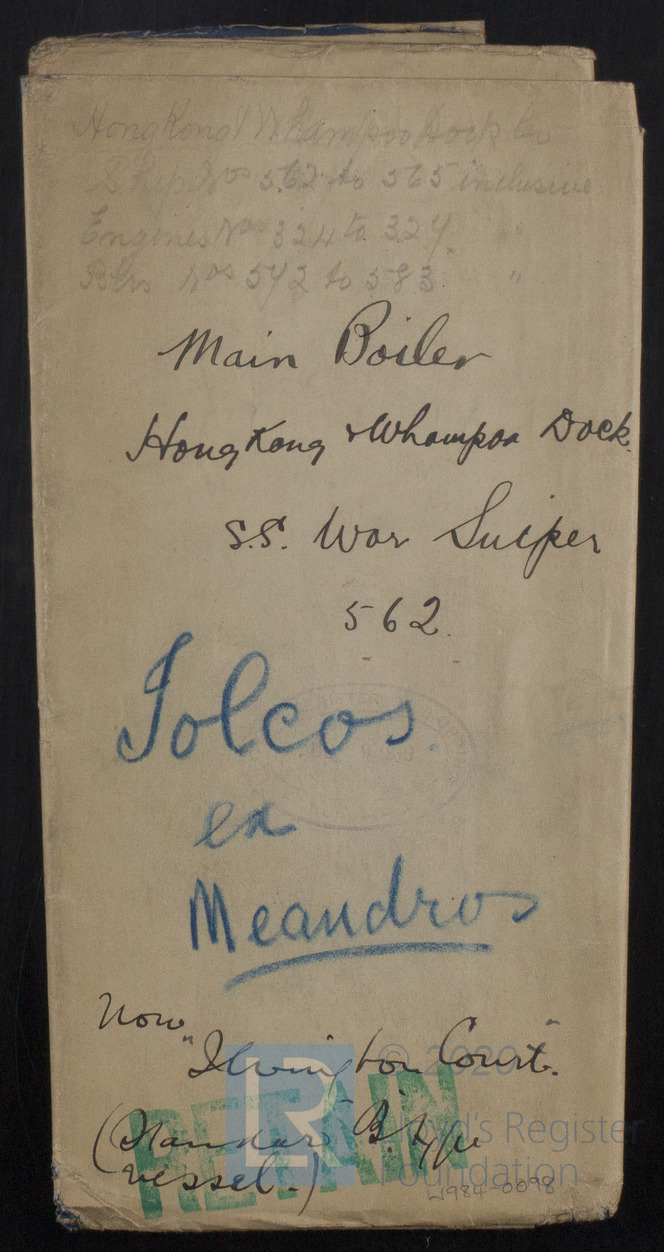 HongKong & Whampoa Dock Co
Ship Nos 562 to 565 inclusive
Engines Nos 324 to 327 "
Blrs Nos 572 to 583 "
Main Boiler
HongKong & Whampoa Dock
S.S. War Sniper
562.
Iolcos.
ex
Meandros
Now
"Ilvington Court".
(Standard B. type
vessel.)
RETAIN
LR
© 2020
Lloyd's Register
Foundation
W984-0098